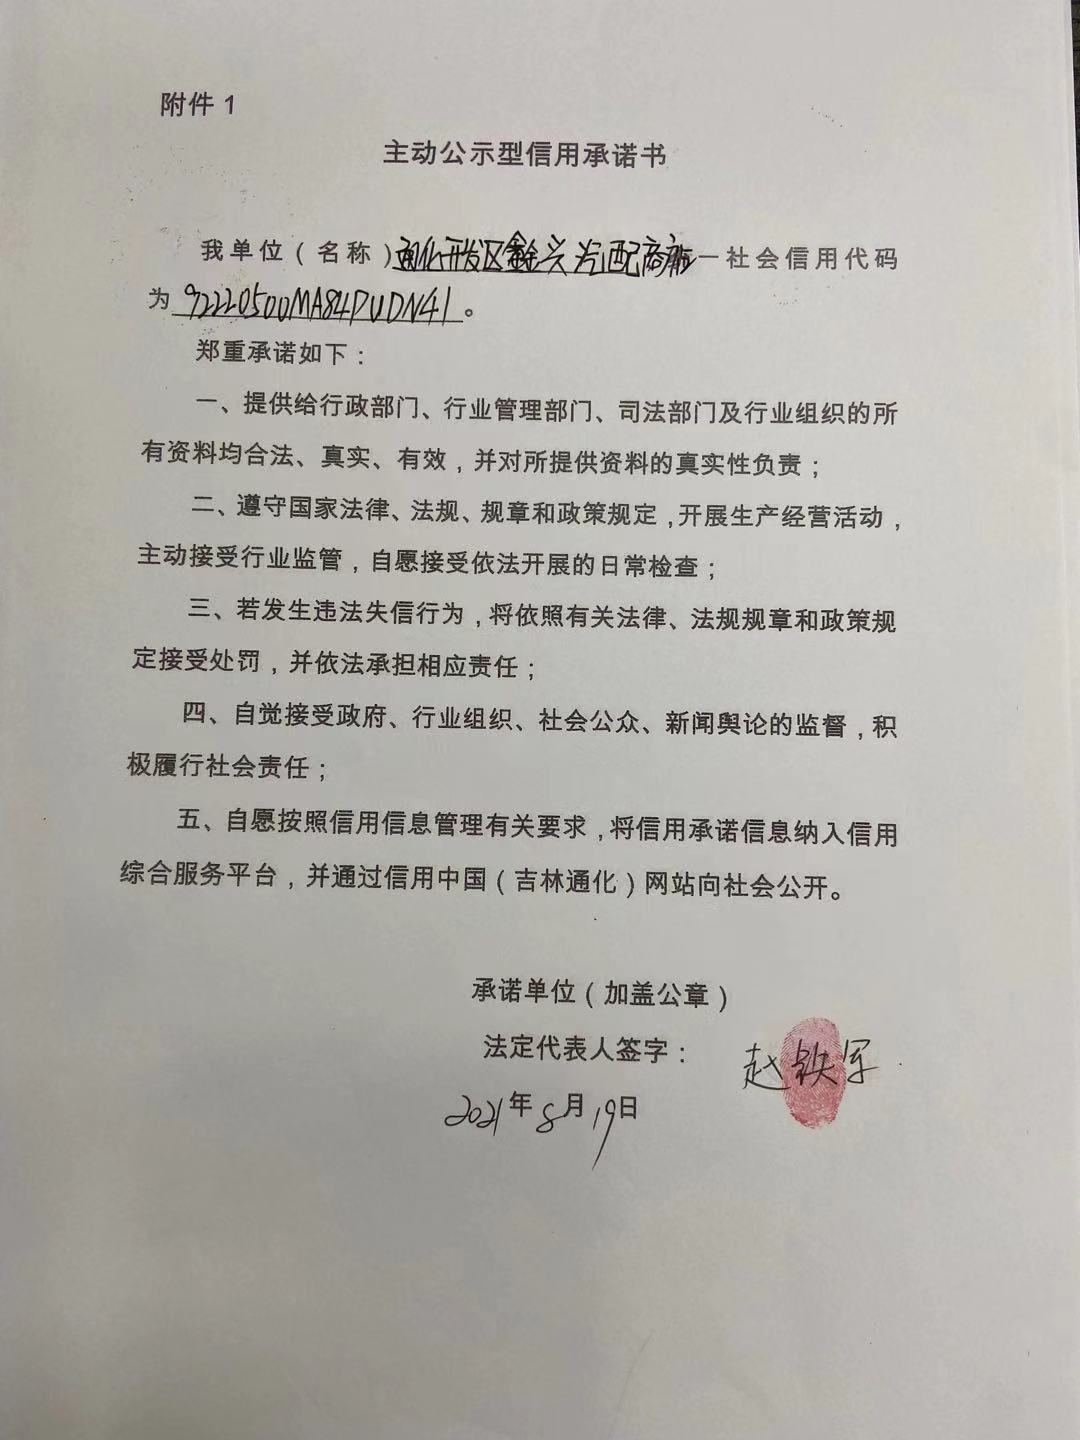 附件 1
主动公示型信用承诺书
我单位（名称）通化开发区鑫兴汽配商店一社会信用代码
为92220500MA84PUDN41。
郑重承诺如下：
一、提供给行政部门、行业管理部门、司法部门及行业组织的所
有资料均合法、真实、有效，并对所提供资料的真实性负责；
二、遵守国家法律、法规、规章和政策规定，开展生产经营活动，
主动接受行业监管，自愿接受依法开展的日常检查；
三、若发生违法失信行为，将依照有关法律、法规规章和政策规
定接受处罚，并依法承担相应责任；
四、自觉接受政府、行业组织、社会公众、新闻舆论的监督，积
极履行社会责任；
五、自愿按照信用信息管理有关要求，将信用承诺信息纳入信用
综合服务平台，并通过信用中国（吉林通化）网站向社会公开。
承诺单位（加盖公章）
法定代表人签字：赵铁军
2021年8月19日